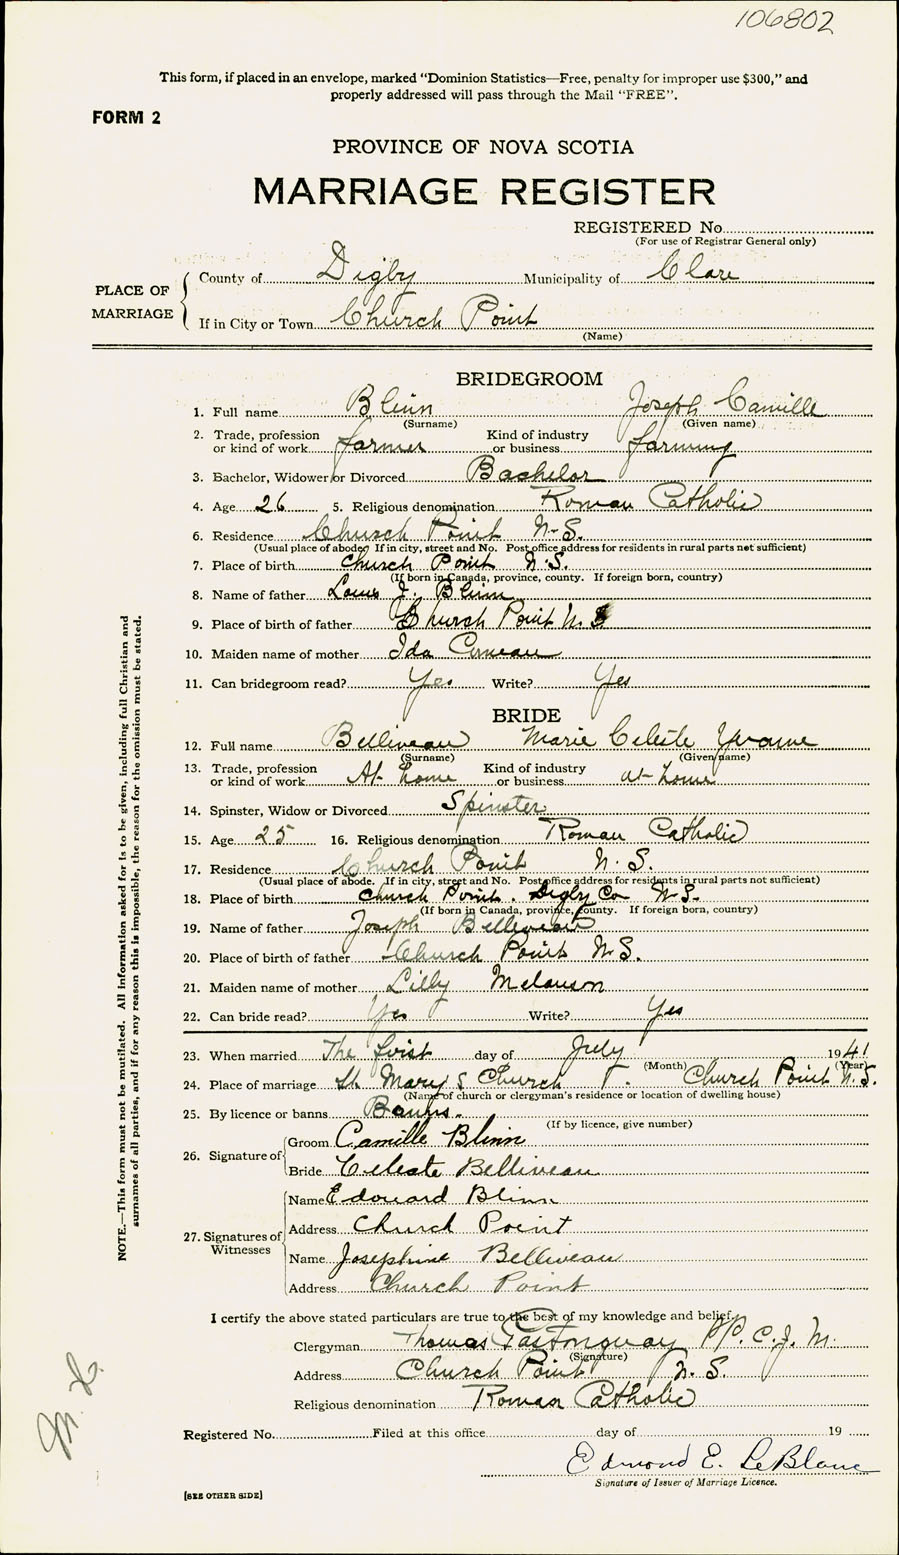 106802
This form, if placed in an envelope, marked "Dominion Statistics—Free, penalty for improper use $300," and
properly addressed will pass through the Mail "FREE".
FORM 2
PROVINCE OF NOVA SCOTIA
MARRIAGE REGISTER
REGISTERED No.
(For use of Registrar General only)
PLACE OF MARRIAGE
County of Digby Municipality of Clare
If in City or Town Church Point
(Name)
BRIDEGROOM
1. Full name Blinn Joseph Camille
(Surname) (Given name)
2. Trade, profession or kind of work farmer Kind of industry or business farming
3. Bachelor, Widower or Divorced Bachelor
4. Age 26 5. Religious denomination Roman Catholic
6. Residence Church Point N-S.
(Usual place of abode. If in city, street and No. Post office address for residents in rural parts not sufficient)
7. Place of birth Church Point N.S.
(If born in Canada, province, county. If foreign born, country)
8. Name of father Louis J. Blinn
9. Place of birth of father Church Point N.S
10. Maiden name of mother Ida Comeau
11. Can bridegroom read? Yes Write? Yes
BRIDE
12. Full name Belliveau Marie Celeste Yvonne
(Surname) (Given name)
13. Trade, profession or kind of work At home Kind of industry or business at home
14. Spinster, Widow or Divorced Spinster
15. Age 25 16. Religious denomination Roman Catholic
17. Residence Church Point N. S.
(Usual place of abode. If in city, street and No. Post office address for residents in rural parts not sufficient)
18. Place of birth Church Point. Digby Co N-S.
(If born in Canada, province, county. If foreign born, country)
19. Name of father Joseph Belliveau
20. Place of birth of father Church Point N.S.
21. Maiden name of mother Lilly Melanson
22. Can bride read? Yes Write? Yes
23. When married The first day of July 1941
(Month) (Year)
24. Place of marriage St Mary's Church Church Point N.S.
(Name of church or clergyman's residence or location of dwelling house)
25. By licence or banns Banns.
(If by licence, give number)
26. Signature of
Groom Camille Blinn
Bride Celeste Belliveau
27. Signatures of Witnesses
Name Edouard Blinn
Address Church Point
Name Josephine Belliveau
Address Church Point
I certify the above stated particulars are true to the best of my knowledge and belief.
Clergyman Thomas Gastonguay P.P. C.J.M.
(Signature)
Address Church Point N. S.
Religious denomination Roman Catholic
Registered No. Filed at this office day of 19
Edmond E. LeBlanc
Signature of Issuer of Marriage Licence.
[SEE OTHER SIDE]
NOTE.—This form must not be mutilated. All information asked for is to be given, including full Christian and
surnames of all parties, and if for any reason this is impossible, the reason for the omission must be stated.